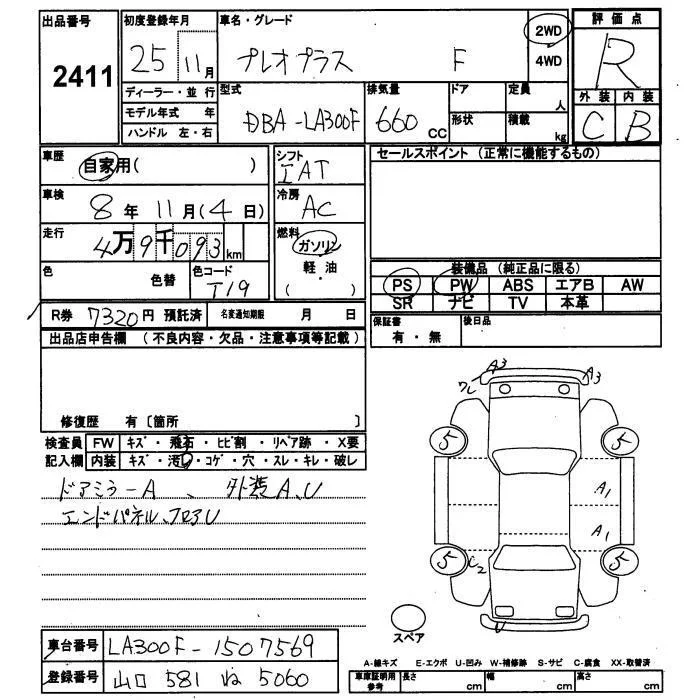 出品番号 2411
初度登録年月 25 11月
車名・グレード プレオプラス F
2WD
4WD
評価点 R
外装 内装
C B
ディーラー・並行
モデル年式 年
ハンドル 左・右
型式 DBA-LA300F
排気量 660 CC
ドア
形状
定員 人
積載 kg
車歴 自家用( )
シフト IAT
セールスポイント (正常に機能するもの)
車検 8年11月(4日)
冷房 AC
走行 4万9千093km
燃料 ガソリン
軽油
( )
色 色替
色コード T19
装備品 (純正品に限る)
PS PW ABS エアB AW
SR ナビ TV 本革
R券 7320円 預託済
名変通知期限 月 日
保証書 有・無
後日品
出品店申告欄 (不良内容・欠品・注意事項等記載)
修復歴 有 〔箇所 〕
検査員 FW キズ・飛石・ヒビ割・リペア跡・X要
記入欄 内装 キズ・汚れ・コゲ・穴・スレ・キレ・破レ
ドアミラーA、外装A、U
エンドパネル、フロアU
ワレ A3 A3
5 5
A1
A1
5 C2 5
U
スペア
車台番号 LA300F-1507569
登録番号 山口 581 ね 5060
A-線キズ E-エクボ U-凹み W-補修跡 S-サビ C-腐食 XX-取替済
車庫証明用参考 長さ cm 幅 cm 高さ cm